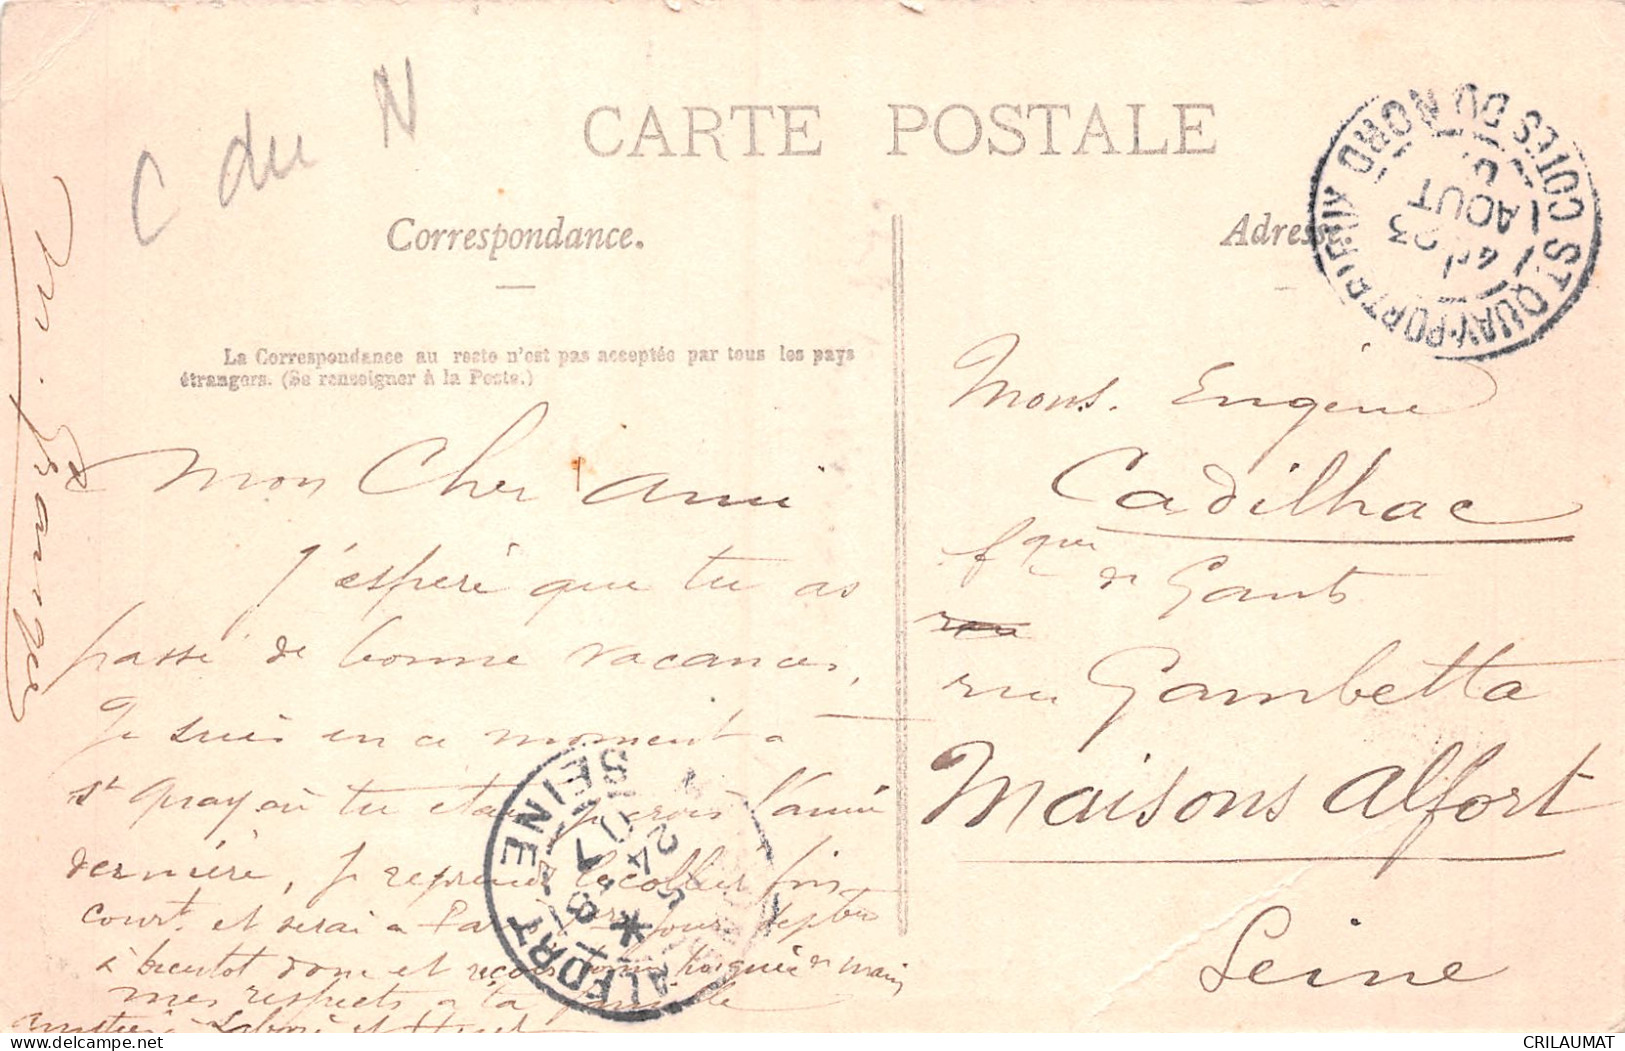 C du N
CARTE POSTALE
Correspondance.
Adres
La Correspondance au reste n'est pas acceptée par tous les pays
étrangers. (Se renseigner à la Poste.)
Mon Cher Ami
J'espère que tu as
passé de bonne vacances,
Je suis en ce moment a
St Quay où tu étais je crois l'année
dernière, Je reprend le collier fin
court. et serai a 1er jour Septbre
à bientôt donc et reçois bonne poignée de main
mes respects a ta famille
amitiés à
M. Granger
ST QUAY-PORTRIEUX CÔTES DU NORD
23
AOUT
Mons. Eugène
Cadilhac
fque de Gants
rue Gambetta
Maisons Alfort
Seine
ALFORT SEINE
24 - 8
07
CRILAUMAT
delcampe.net